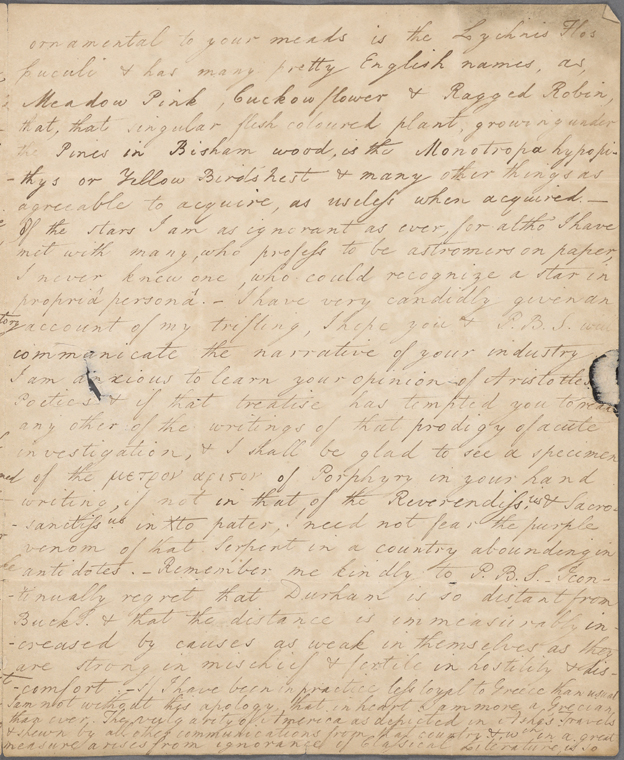 ornamental to your meads is the Lychnis Flos
Cuculi & has many pretty English names, as,
Meadow Pink, Cuckowflower & Ragged Robin,
that, that singular flesh coloured plant, growing under
the Pines in Bisham wood, is the Monotropa hypopi-
-thys or Yellow Bird's Nest & many other things as
agreeable to acquire, as useless when acquired. —
Of the stars I am as ignorant as ever, for altho I have
met with many, who profess to be astromers on paper,
I never knew one, who could recognize a star in
propriâ personâ. - I have very candidly given an
account of my trifling, I hope you & P.B.S. will
communicate the narrative of your industry
I am anxious to learn your opinion of Aristotles
Poetics & if that treatise has tempted you to read
any other of the writings of that prodigy of acute
investigation, & I shall be glad to see a specimen
of the μετρον αριστον of Porphyry in your hand
writing, if not in that of the Reverendiss.us & Sacro-
-sanctiss.us in Xto pater, I need not fear the purple
venom of that Serpent in a country abounding in
antidotes. - Remember me kindly to P.B.S. I con-
-tinually regret that Durham is so distant from
Bucks. & that the distance is immeasurably in-
-creased by causes as weak in themselves as they
are strong in mischief & fertile in hostility & dis-
-comfort. - If I have been in practice less loyal to Greece than usual
I am not without this apology, that in heart I am more a Grecian
than ever. The vulgarity of America as depicted in Ashes travels
& shewn by all other communications from that country & wch in a great
measure arises from ignorance of Classical Literature, is so